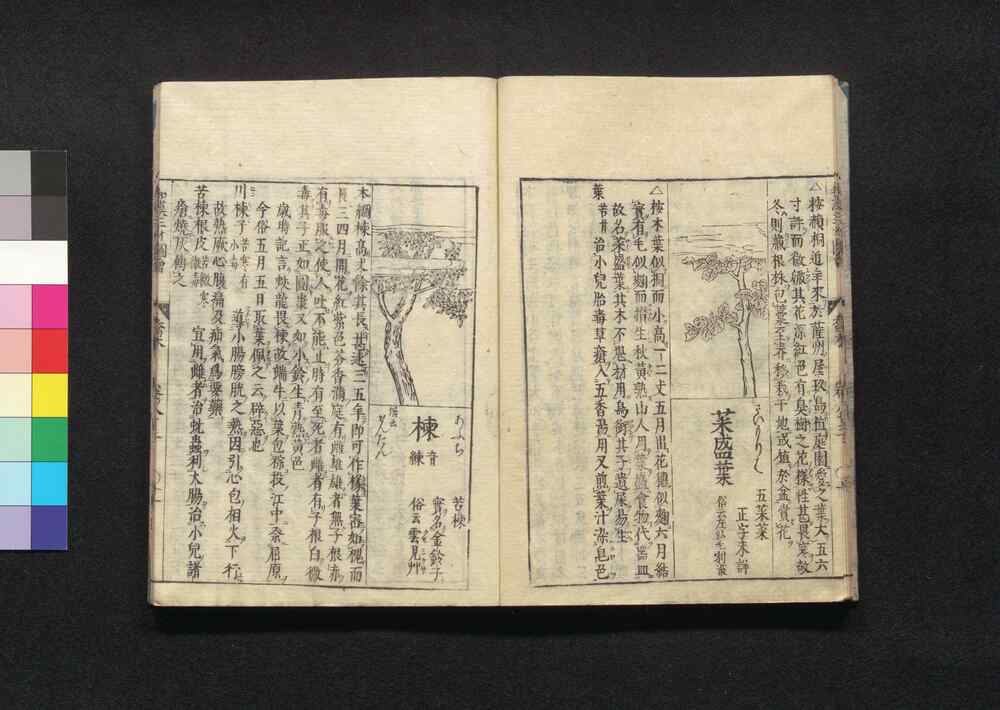 △按頳桐近年來於薩州屋玖島植庭園愛之葉大五六
寸許而皺織其花深紅色有臭樹之花樣性甚畏寒故
冬則藏根株包藁至春移栽于地或植於盆賞花
菜盛葉
五菜葉
正字未詳
△按木葉似桐而小高一二丈五月出花穗似麹六月結
實有毛似麹而滑生秋黃熟山人用葉盛食物代器皿
故名菜盛葉其木不堪材用鳥銜其子遺屎易生
葉 治小兒胎毒草瘡入五香湯用又煎葉汁染皂色
あふち
楝 音練
俗云せんだん
苦楝
實名金鈴子
俗云雲見艸
本綱楝高丈餘其長甚速三五年即可作椽葉密如槐而
長三四月開花紅紫色芬香滿庭有雌雄雄者無子根赤
有毒服之使人吐不能止時有至死者雌者有子根白微
毒其子正如圓棗又如小鈴生青熟黃色
歲時記言蛟龍畏楝故端午以葉包粽投江中祭屈原
今俗五月五日取葉佩之云辟惡也
川楝子 苦寒有小毒 導小腸膀胱之熱因引心包相火下行
故熱厥心腹痛及疝氣爲要藥
苦楝根皮 苦微寒微毒 宜用雌者治蚘蟲利大腸治小兒諸
瘡燒灰傅之